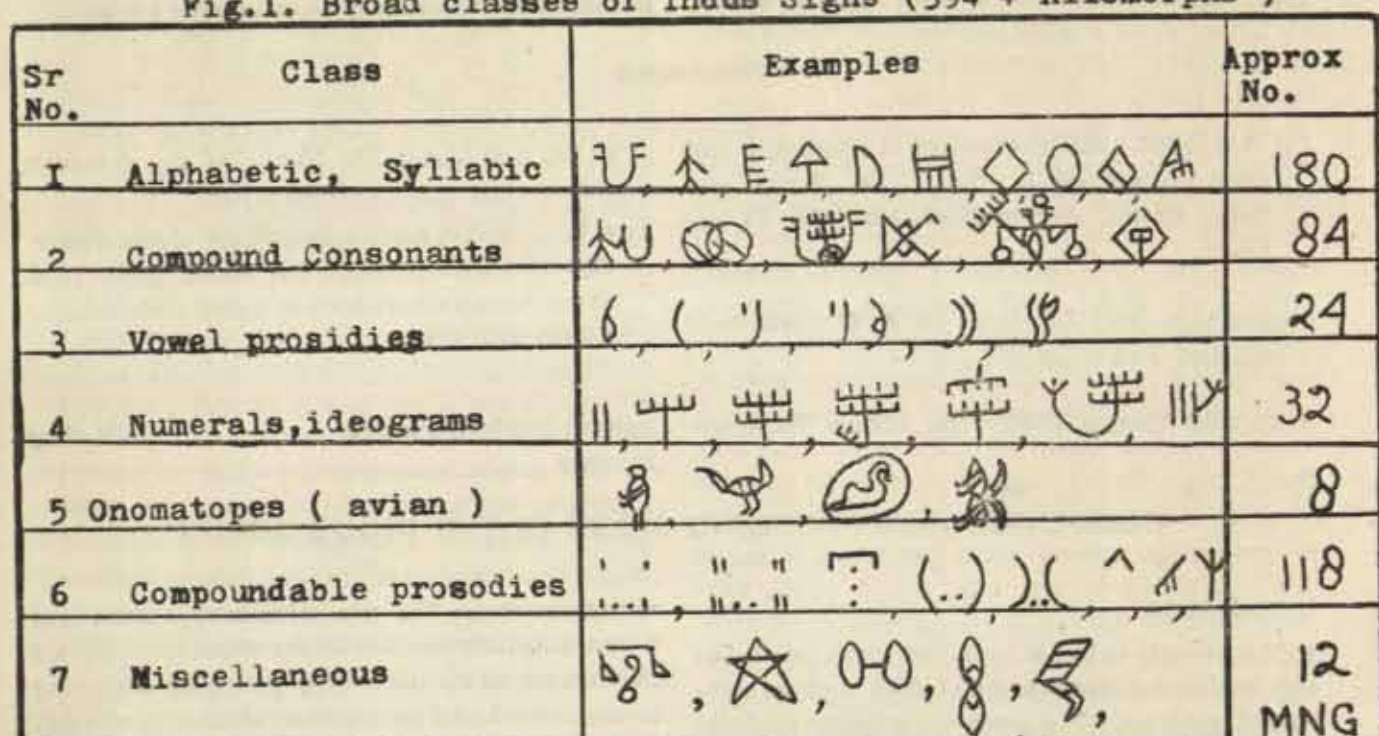 Fig.1. Broad classes of Indus Signs (394 +
Sr No. Class Examples Approx No.
I Alphabetic, Syllabic 180
2 Compound Consonants 84
3 Vowel prosidies 24
4 Numerals,ideograms 32
5 Onomatopes ( avian ) 8
6 Compoundable prosodies 118
7 Miscellaneous 12
MNG